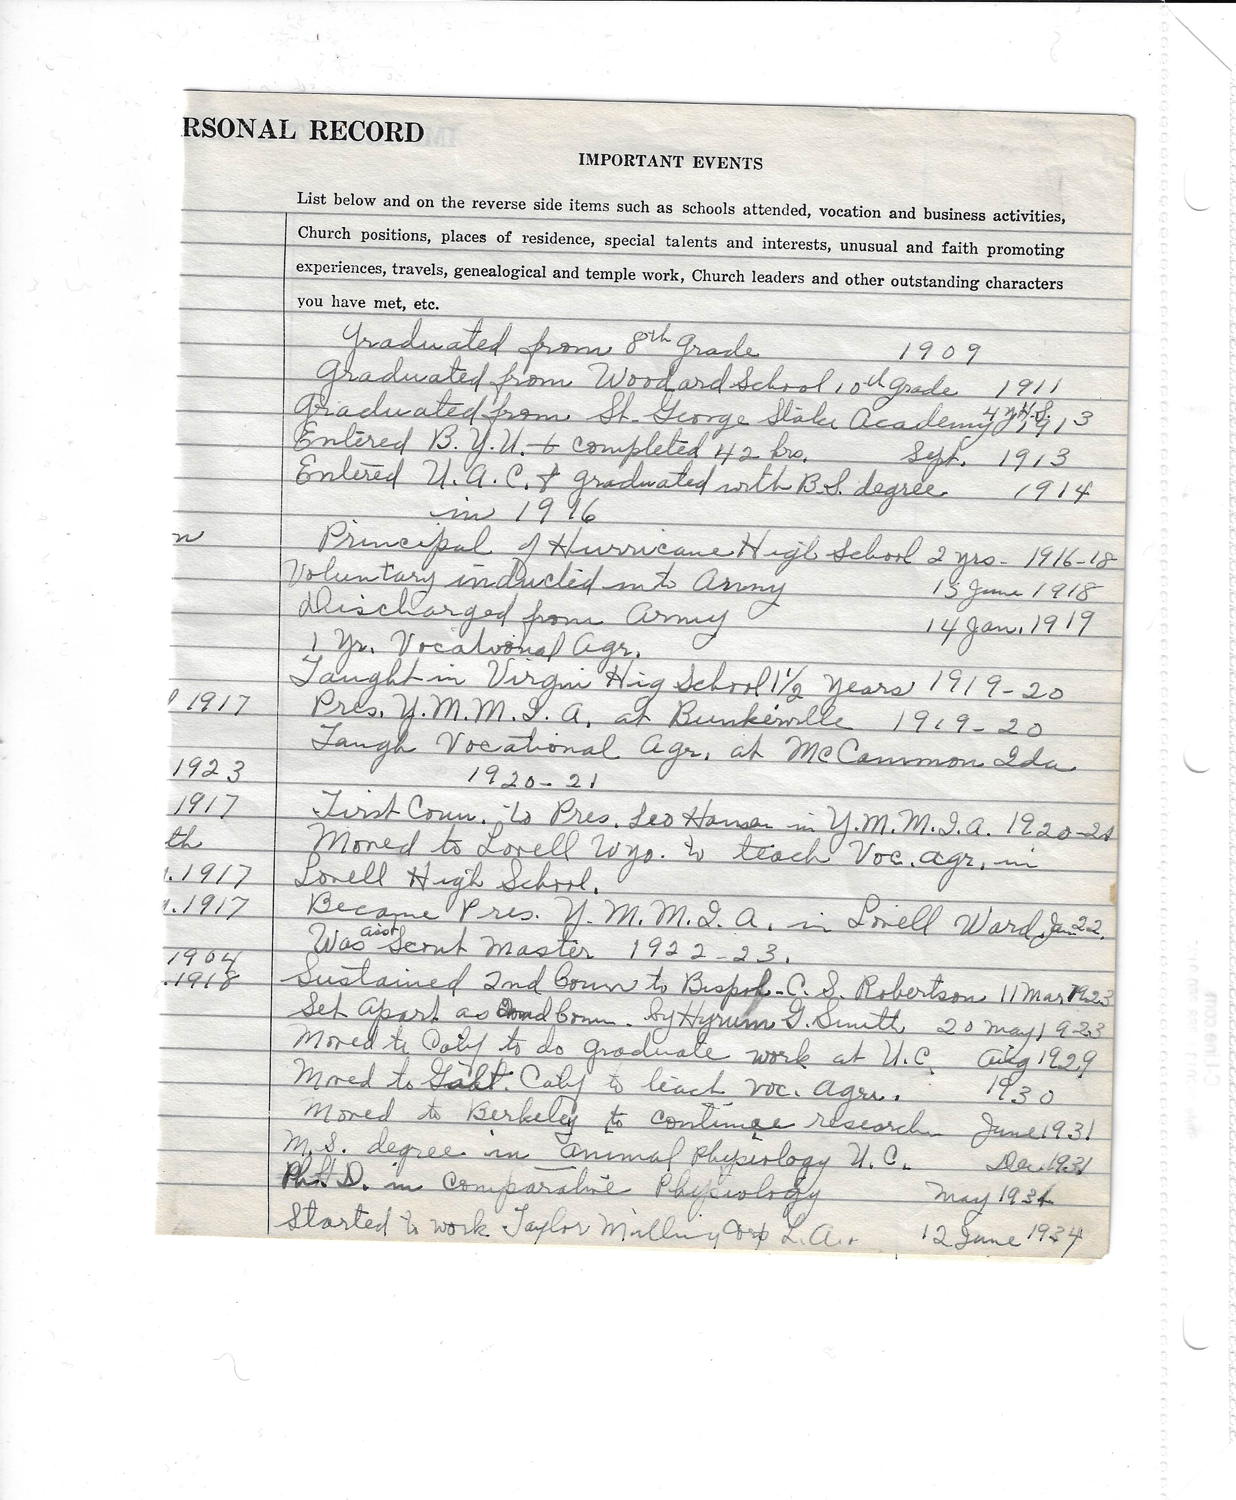 RSONAL RECORD
IMPORTANT EVENTS
List below and on the reverse side items such as schools attended, vocation and business activities,
Church positions, places of residence, special talents and interests, unusual and faith promoting
experiences, travels, genealogical and temple work, Church leaders and other outstanding characters
you have met, etc.
Graduated from 8th Grade 1909
Graduated from Woodard School 10th Grade 1911
Graduated from St. George Stake Academy 4 yr H.S. 1913
Entered B.Y.U. + completed 42 hrs. Sept. 1913
Entered U.A.C. & graduated with B.S. degree 1914
in 1916
n Principal of Hurricane High School 2 yrs - 1916-18
Voluntary inducted into Army 15 June 1918
Discharged from Army 14 Jan. 1919
1 Yr. Vocational Agr.
Taught in Virgin Hig School 1½ years 1919-20
1917 Pres. Y.M.M.I.A. at Bunkerville 1919-20
Taugh Vocational Agr. at McCammon Ida
1923 1920-21
1917 First Coun. to Pres. Leo Hansen in Y.M.M.I.A. 1920-21
th Moved to Lovell Wyo. to teach Voc. Agr. in
.1917 Lovell High School.
.1917 Became Pres. Y.M.M.I.A. in Lovell Ward Jan 22.
Was asst Scout Master 1922-23.
1904
.1918 Sustained 2nd Coun to Bishop C. S. Robertson 11 Mar 1923
Set apart as 2nd Coun. by Hyrum G. Smith 20 May 1923
Moved to Calif to do graduate work at U.C. Aug 1929
Moved to Galt. Calif to teach voc. Agri. 1930
Moved to Berkeley to continue research June 1931
M.S. degree in Animal Physiology U.C. Dec. 1931
Ph.D. in Comparative Physiology May 1934
Started to work Taylor Milling Corp L.A. 12 June 1934